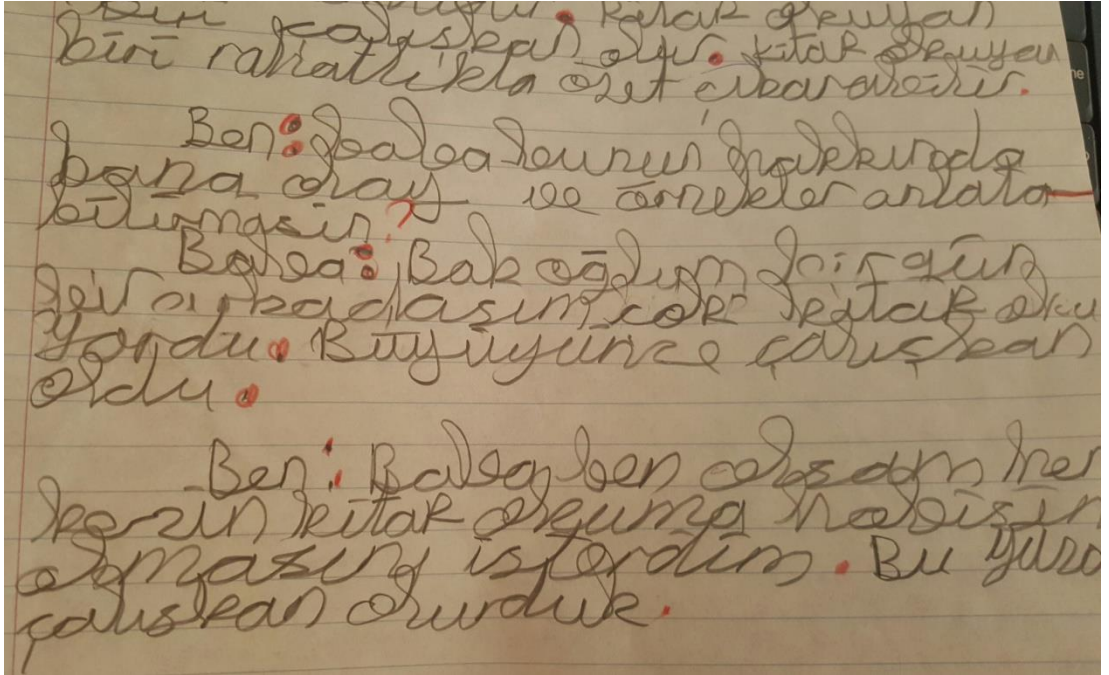 Bir çalışkan olur. kitak okuyan
biri rahatlıkla özet çıkarabilir.
Ben: baba bunun hakkında
bana olay ve örnekler anlata-
bilirmasin?
Baba: Bak oğlum bir gün
bir arkadaşım çok kitak oku
yordu. Büyüyünce çalışkan
oldu.
Ben: Baba ben olsam her
kezin kitak okuma
olmasını isterdim. Bu
çalışkan olurduk.